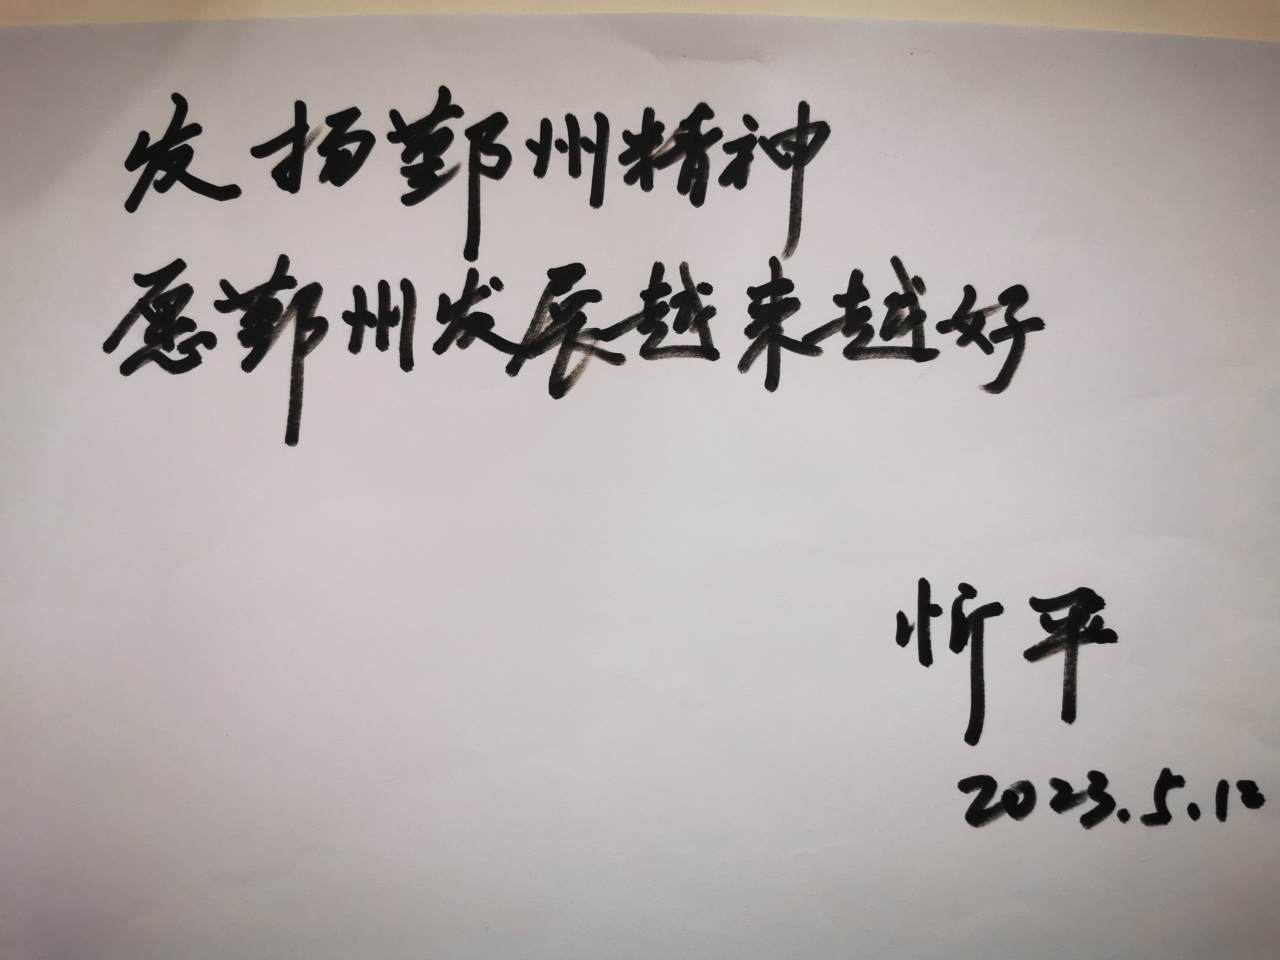 发扬鄞州精神
愿鄞州发展越来越好
忻平
2023.5.12